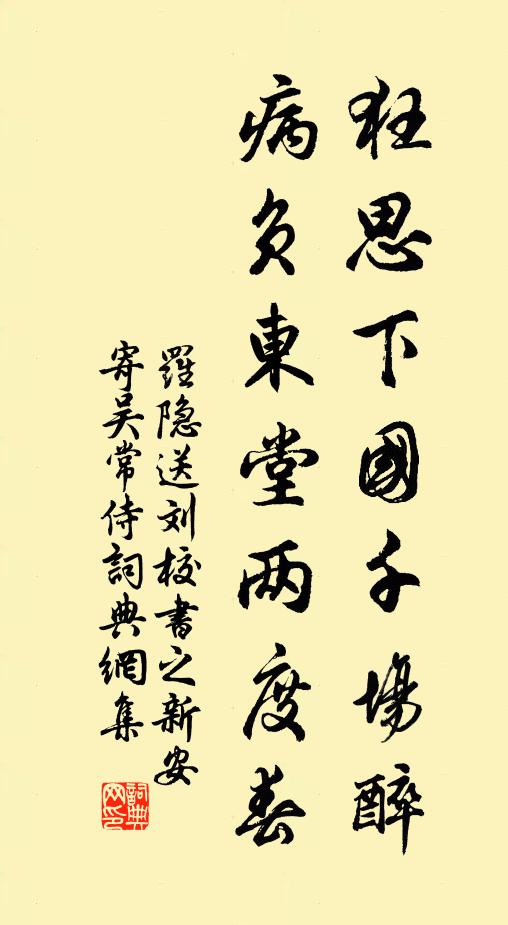 狂思下國千場醉
病負東堂两度春
羅隐送刘校書之新安
寄吴常侍詞典網集
詞典
网印